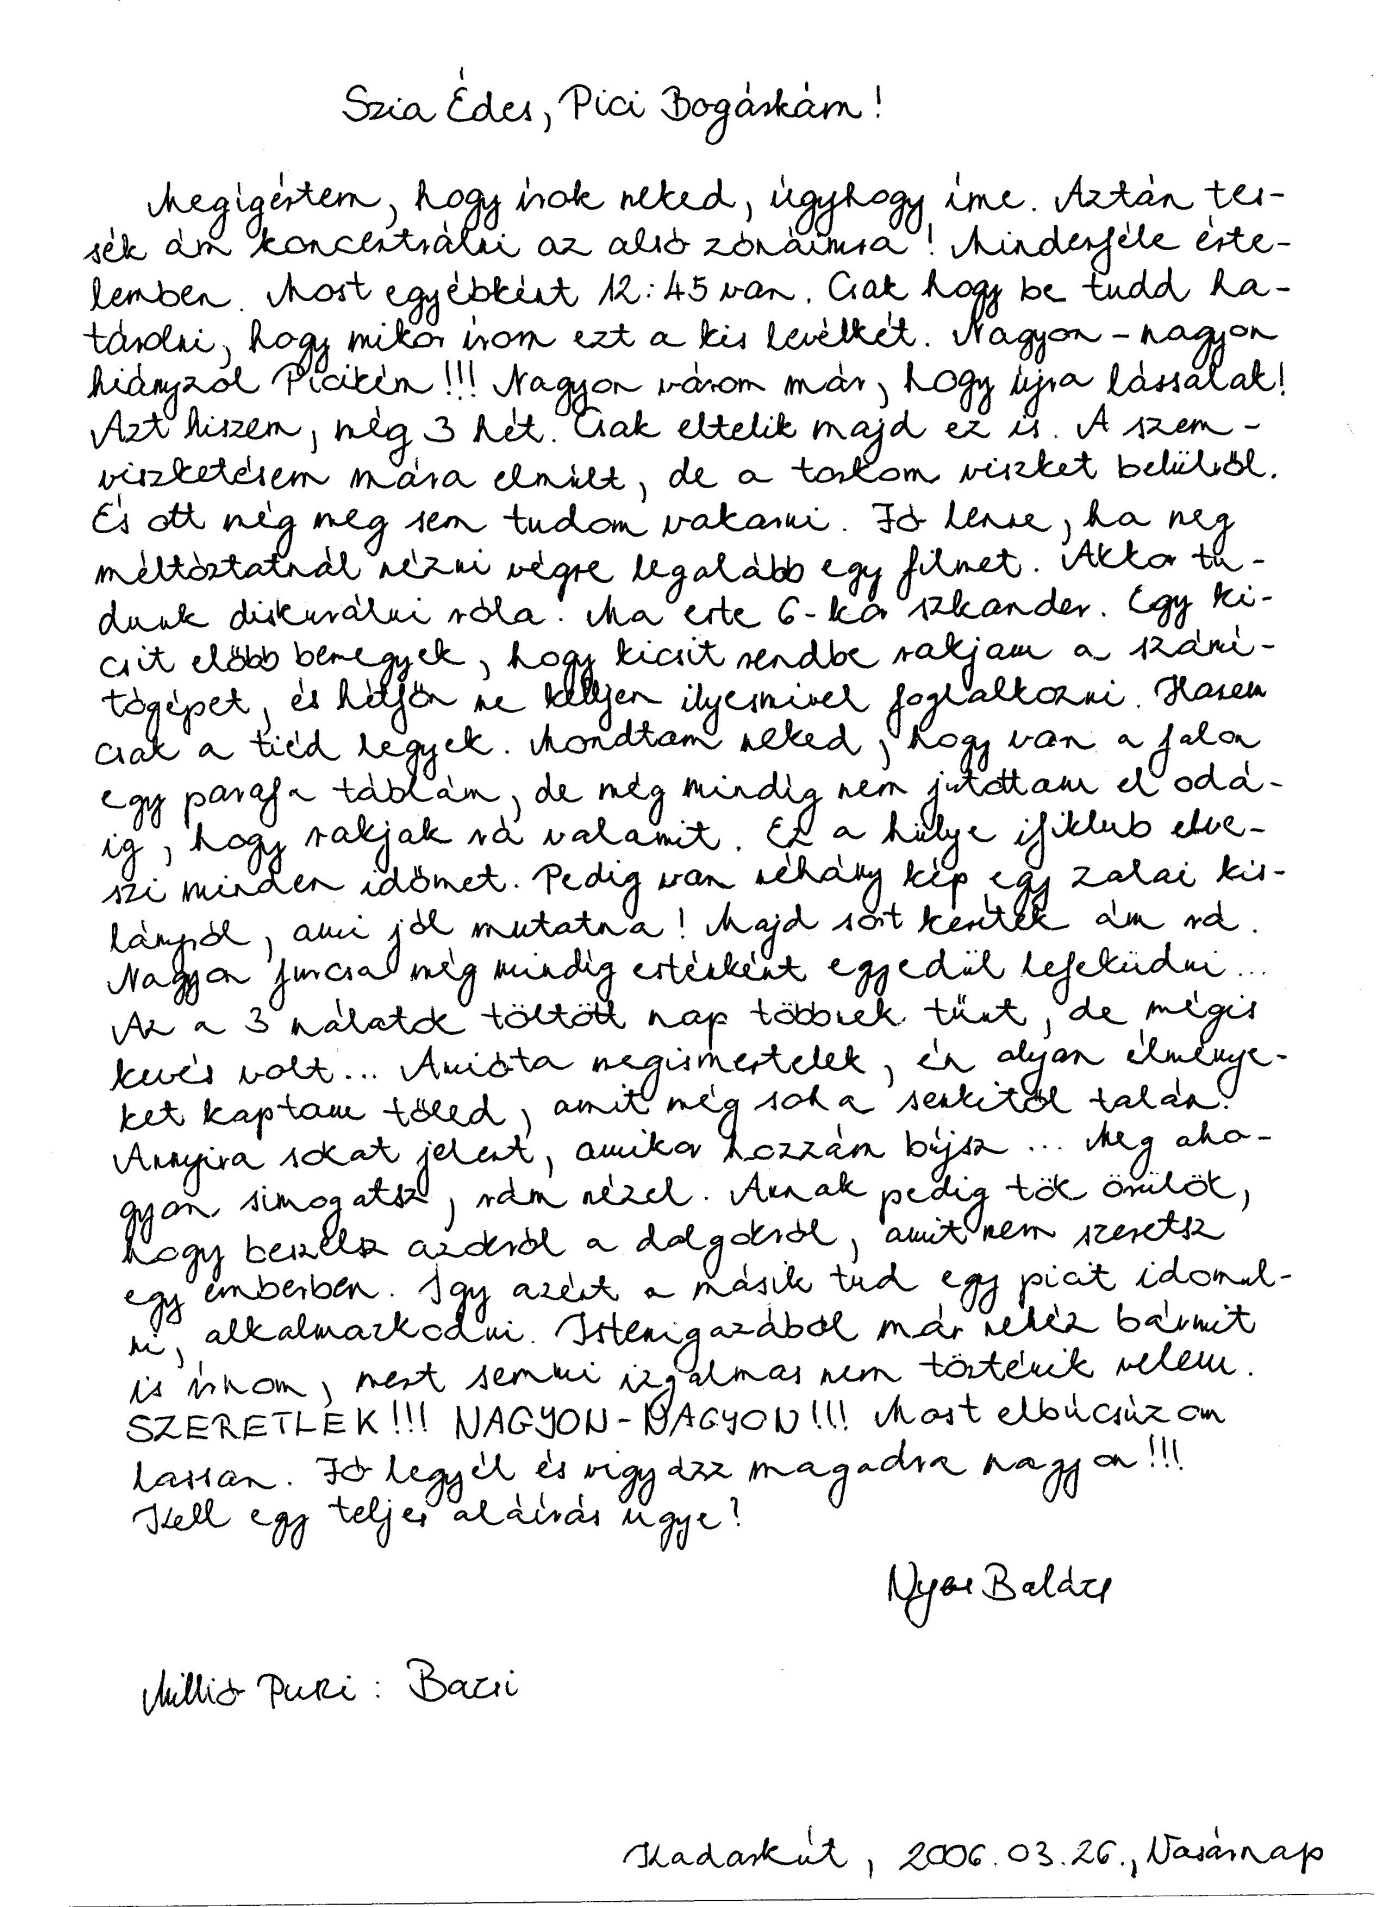 Szia Édes, Pici Bogáskám!
Megígértem, hogy írok neked, úgyhogy íme. Aztán tes-
sék ám koncentrálni az alsó zónáimra! Mindenféle érte-
lemben. Most egyébként 12:45 van. Csak hogy be tudd ha-
tárolni, hogy mikor írom ezt a kis levélkét. Nagyon-nagyon
hiányzol Picikém!!! Nagyon várom már, hogy újra lássalak!
Azt hiszem, még 3 hét. Csak eltelik majd ez is. A szem-
viszketésem mára elmúlt, de a torkom viszket belülről.
És ott még meg sem tudom vakarni. Jó lenne, ha meg
méltóztatnál nézni végre legalább egy filmet. Akkor tu-
dunk diskurálni róla. Ma este 6-kor szkander. Egy ki-
csit előbb bemegyek, hogy kicsit rendbe rakjam a számí-
tógépet, és hétfőn ne kelljen ilyesmivel foglalkozni. Hanem
csak a tiéd legyek. Mondtam neked, hogy van a falon
egy parafa táblám, de még mindig nem jutottam el odá-
ig, hogy rakjak rá valamit. Ez a hülye ifiklub elve-
szi minden időmet. Pedig van néhány kép egy zalai kis-
lányról, ami jól mutatna! Majd sort kerítek ám rá.
Nagyon furcsa még mindig esténként egyedül lefeküdni...
Az a 3 nálatok töltött nap többnek tűnt, de mégis
kevés volt... Amióta megismertelek, én olyan élménye-
ket kaptam tőled, amit még soha senkitől talán.
Annyira sokat jelent, amikor hozzám bújsz... Meg aho-
gyan simogatsz, rám nézel. Annak pedig tök örülök,
hogy beszélsz azokról a dolgokról, amit nem szeretsz
egy emberben. Így azért a másik tud egy picit idomul-
ni, alkalmazkodni. Istenigazából már nehéz bármit
is írnom, mert semmi izgalmas nem történik velem.
SZERETLEK!!! NAGYON-NAGYON!!! Most elbúcsúzom
lassan. Jó legyél és vigyázz magadra nagyon!!!
Kell egy teljes aláírás ugye?
Balázs
Millió Puszi: Bazsi
Kadarkút, 2006.03.26., Vasárnap